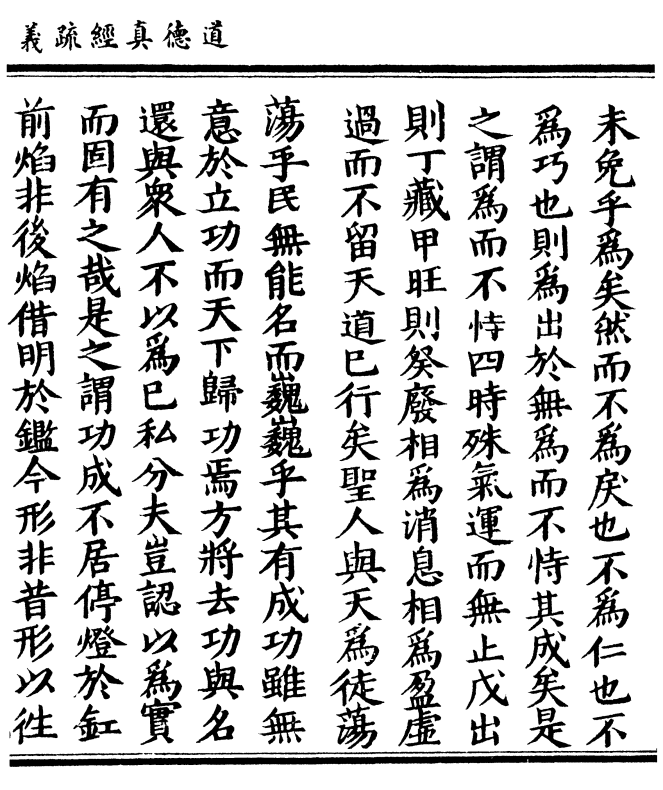 道德真經疏義
未免乎爲矣然而不爲戾也不爲仁也不
爲巧也則爲出於無爲而不恃其成矣是
之謂爲而不恃四時殊氣運而無止戊出
則丁藏甲旺則癸廢相爲消息相爲盈虛
過而不留天道已行矣聖人與天爲徒蕩
蕩乎民無能名而巍巍乎其有成功雖無
意於立功而天下歸功焉方將去功與名
還與衆人不以爲已私分夫豈認以爲實
而固有之哉是之謂功成不居停燈於缸
前焰非後焰借明於鑑今形非昔形以徃